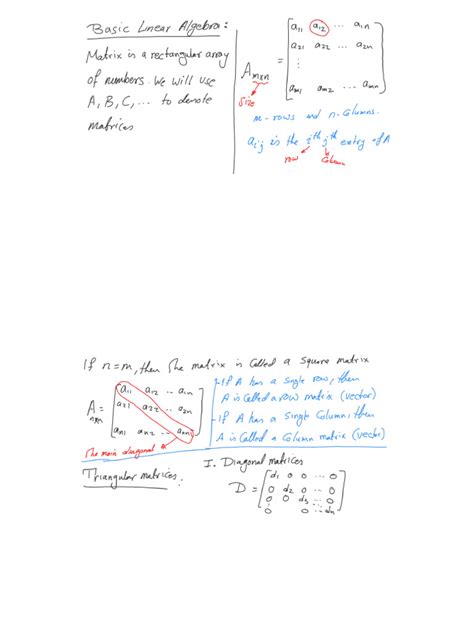 Basic Linear Algebra:
Matrix is a rectangular array
of numbers. We will use
A, B, C, ... to denote
matrices
A m×n = [ a11 a12 ... a1n
a21 a22 ... a2n
⋮
am1 am2 ... amn ]
Size
m-rows and n-columns.
aij is the ith jth entry of A
row column
If n=m, then the matrix is called a square matrix
A n×n = [ a11 a12 ... a1n
a21 a22 ... a2n
an1 an2 ... ann ]
The main diagonal
- If A has a single row, then
A is called a row matrix (vector)
- If A has a single column, then
A is called a column matrix (vector)
Triangular matrices.
I. Diagonal matrices
D = [ d1 0 0 ... 0
0 d2 0 ... 0
0 0 d3 ... 0
0 0 ... dn ]